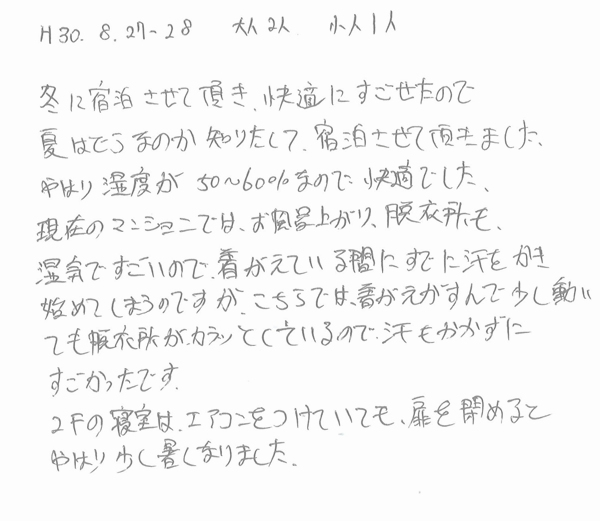 H30. 8. 27~28 大人2人 小人1人
冬に宿泊させて頂き、快適にすごせたので
夏はどうなのか知りたして、宿泊させて頂きました、
やはり湿度が50~60%なので快適でした、
現在のマンションでは、お風呂上がり、脱衣所も、
湿気ですごいので、着がえている間にすでに汗をかき
始めてしまうのですが、こちらでは、着がえがすんで少し動い
ても脱衣所がカラッとしているので、汗もかかずに
すごかったです.
2Fの寝室は、エアコンをつけていても、扉を閉めると
やはり少し暑くなりました.